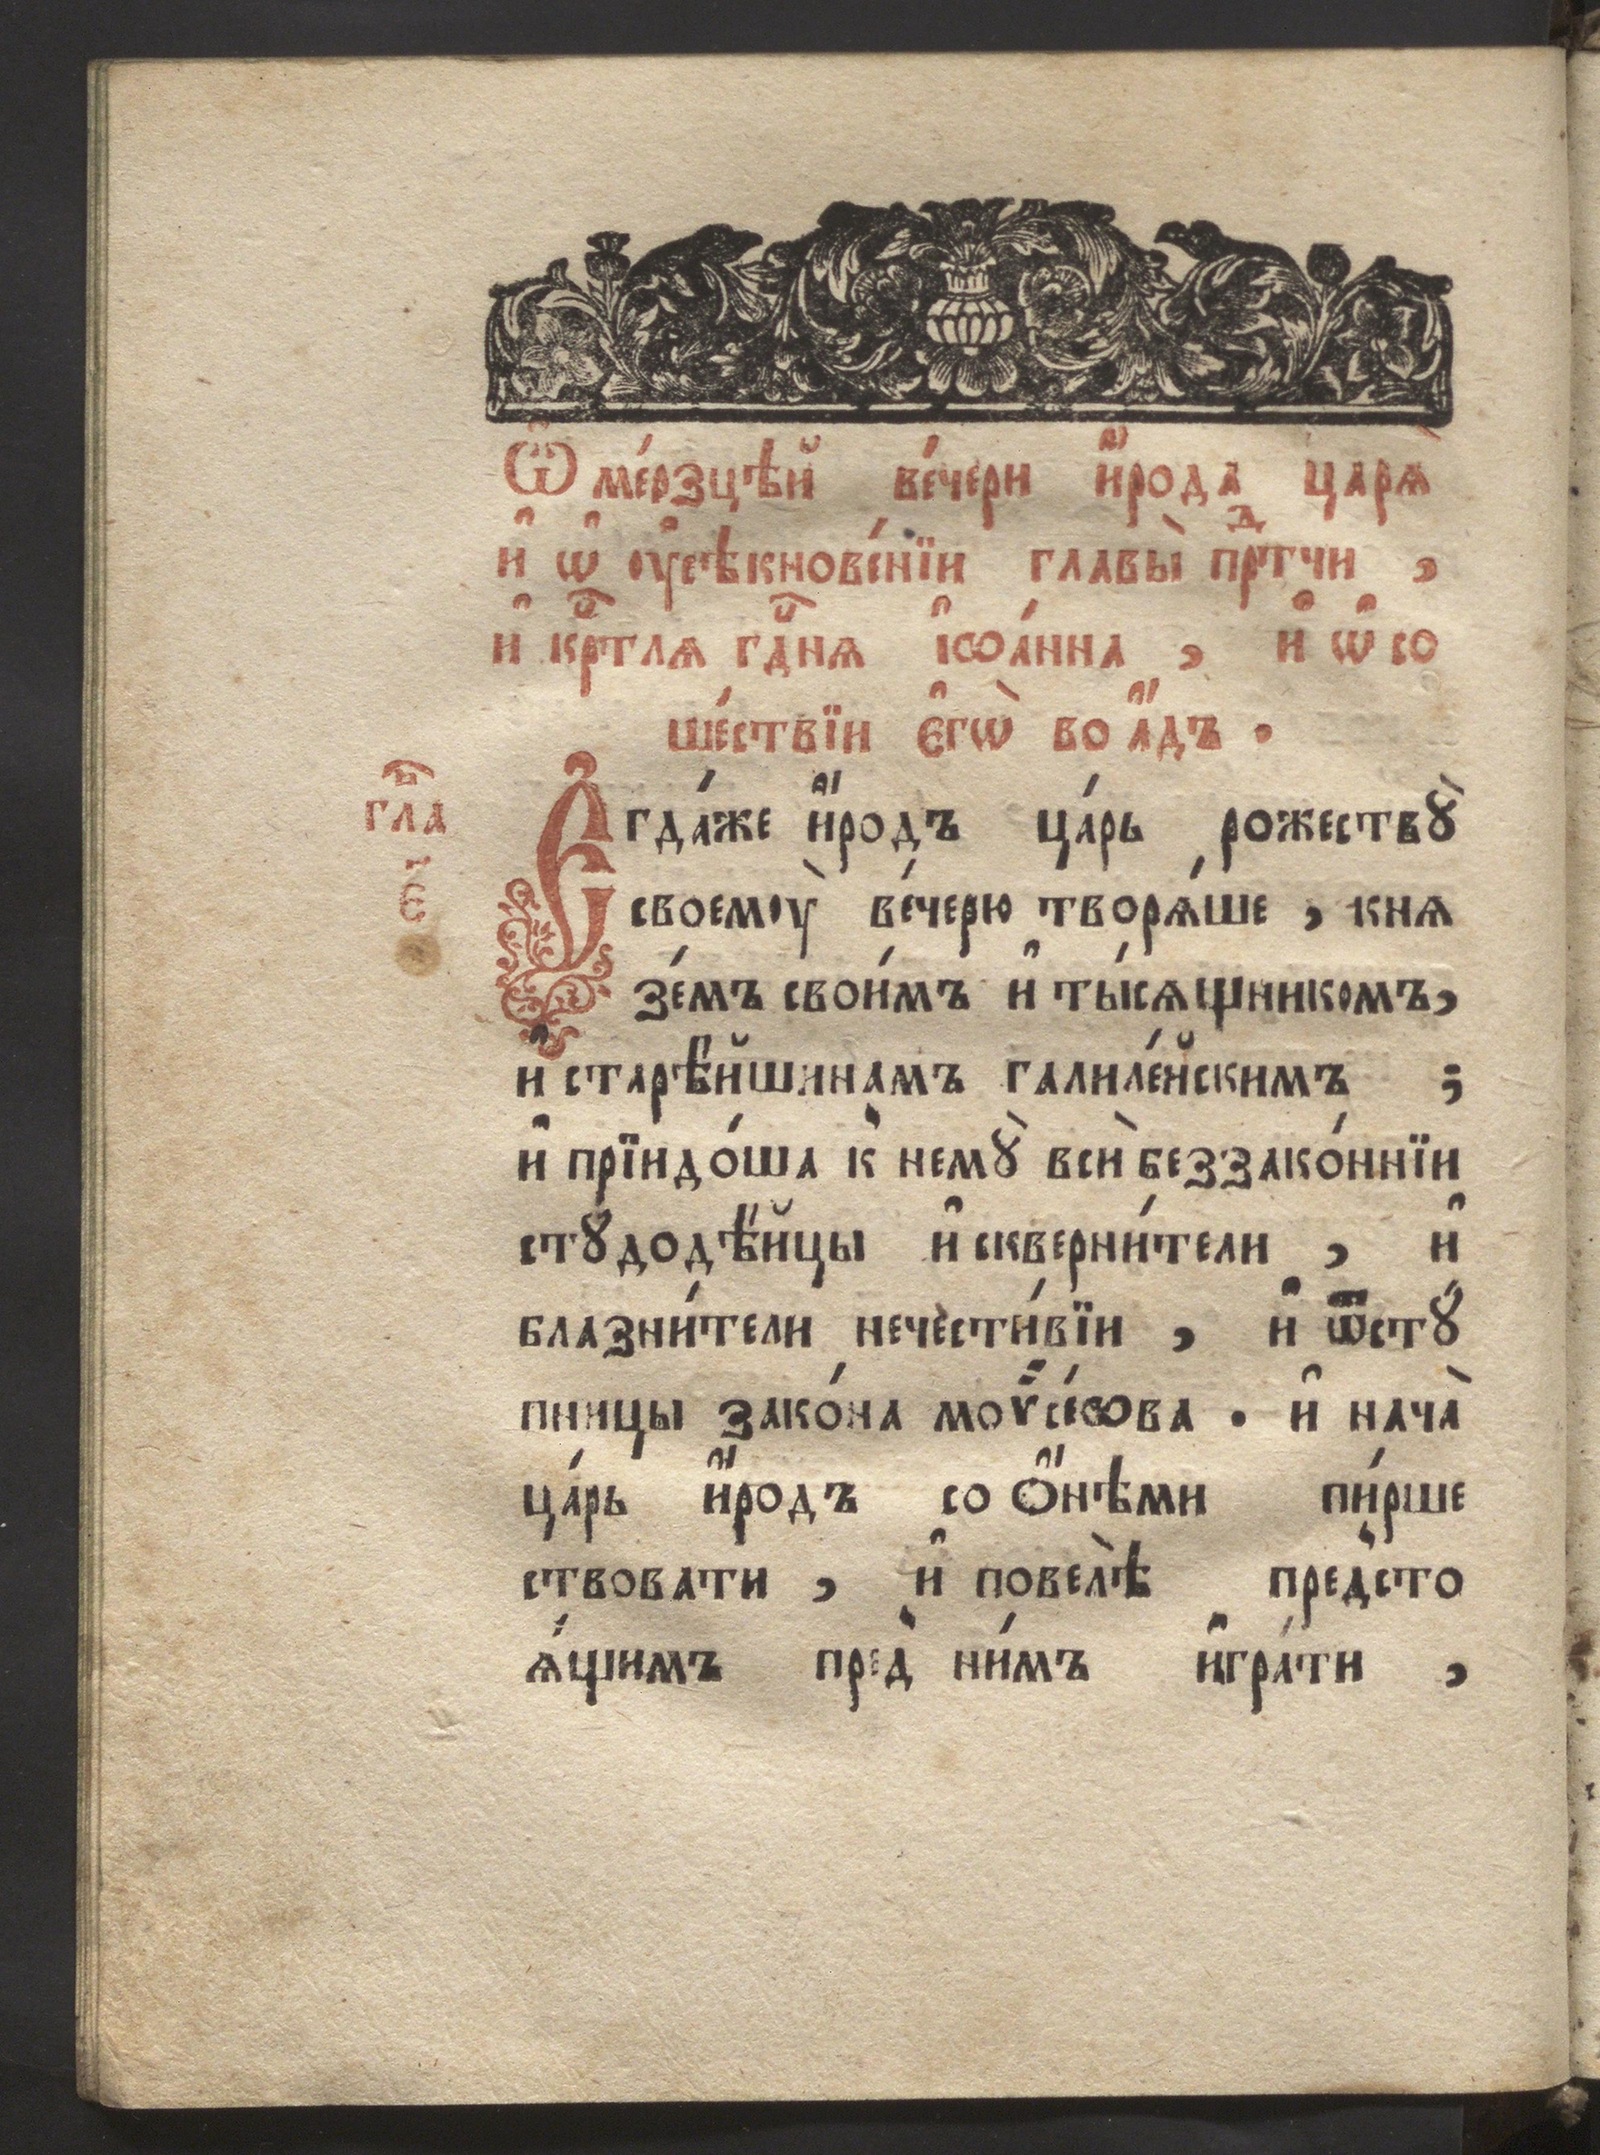 Ѽ ме́рзцѣй ве́чери и҆́рода царѧ̀
и҆ ѡ҆ ᲂу҆сѣкнове́нїи главы̀ прⷣтчи ,
и҆ кр҇тлѧ гд҇нѧ і҆ѡа́нна , и҆ ѡ҆ со
ше́ствїи є҆гѡ̀ во а҆́дъ .
гл҇а
є҃
Є҆гда́же и҆́родъ ца́рь рожествꙋ̀
своемᲂу̀ ве́черю творѧ́ше , кнѧ
зе́мъ свои́мъ и҆ ты́сѧщникомъ,
и҆ старѣ́йшинамъ галиле́йскимъ ;
и҆ прїидо́ша к̾ немꙋ̀ всѝ беззако́ннїи
стꙋдодѣ́йцы и҆ скверни́тели , и҆
блазни́тели нечести́вїи , и҆ ѿстꙋ́
пницы зако́на моѷсе́ѡва . и҆ нача̀
ца́рь и҆́родъ со ѻ҆́нѣми пи́рше
ствовати , и҆ повелѣ̀ пред̾сто
ѧ́щимъ пред̾ ни́мъ и҆гра́ти ,